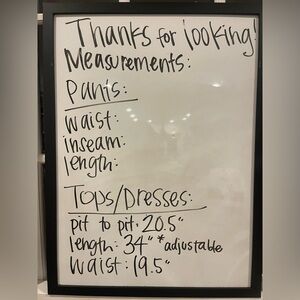 Thanks for looking!
Measurements:
Pants:
waist:
inseam:
length:
Tops/Dresses:
pit to pit: 20.5"
length: 34" *adjustable
waist: 19.5"